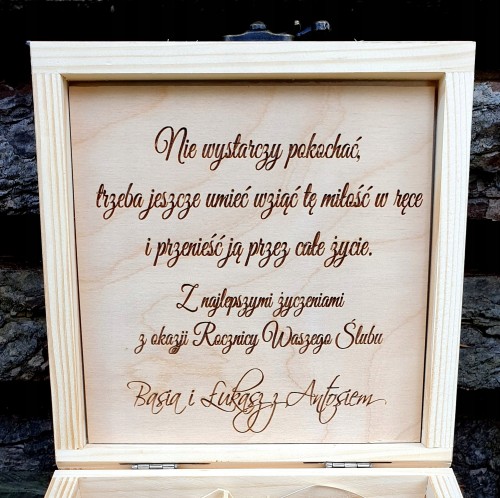 Nie wystarczy pokochać,
trzeba jeszcze umieć wziąć tę miłość w ręce
i przenieść ją przez całe życie.
Z najlepszymi życzeniami
z okazji Rocznicy Waszego Ślubu
Basia i Łukasz z Antosiem